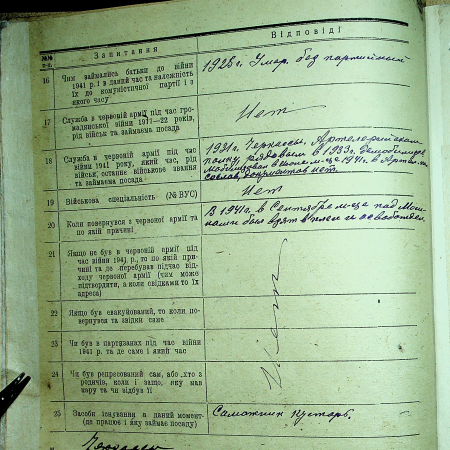 №№ п-п. Запитання Відповіді
16 Чим займались батьки до війни
1941 р. і в даний час та належність
їх до комуністичної партії і з
якого часу
1928 г. Умер. без партийный
17 Служба в червоній армії під час гро-
мадянської війни 1917—22 років,
рід військ та займаєма посада
Нет
18 Служба в червоній армії під час
війни 1941 року, який час, рід
військ, останнє військове звання
та займаєма посада
1931 г. Черкассы. Артелерийском
полку рядовым в 1933 г.
в июне м-це 1941 г. в
документов нет.
19 Військова спеціальність (№ ВУС)
Нет
20 Коли повернувся з червоної армії та
по якій причині
В 1941 г. в Сентябре м-це под
был взят в плен и освобожден
21 Якщо не був в червоній армії під
час війни 1941 р., то по якій при-
чині та де перебував підчас від-
ходу червоної армії (чим може
підтвердити, а коли свідками то їх
адреса)
Нет
22 Якщо був евакуйований, то коли по-
вернувся та звідки саме
23 Чи був в партизанах під час війни
1941 р. та де саме і який час
24 Чи був репресований сам, або хто з
родичів, коли і защо, яку мав
кару та чи відбув її
25 Засоби існування в даний момент
(де працює і яку займає посаду)
Сапожник кустарь.